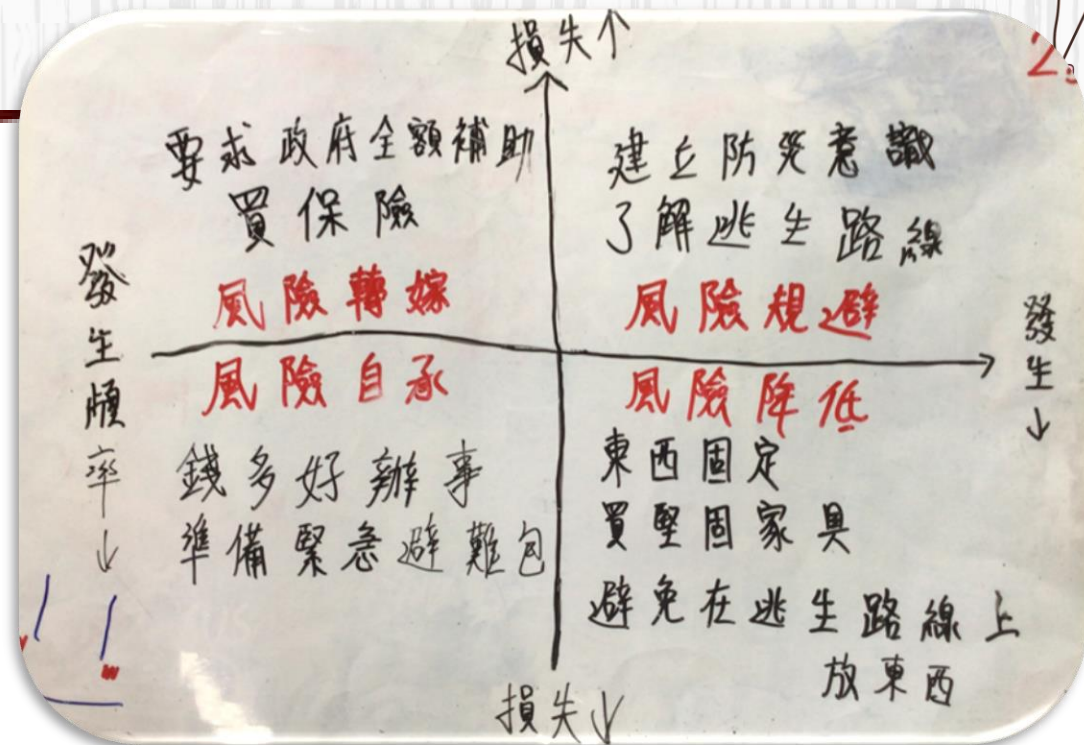 損失↑
要求政府全額補助
買保險
風險轉嫁
建立防災意識
了解逃生路線
風險規避
發生頻率↓
發生↓
風險自承
錢多好辦事
準備緊急避難包
風險降低
東西固定
買堅固家具
避免在逃生路線上
放東西
損失↓